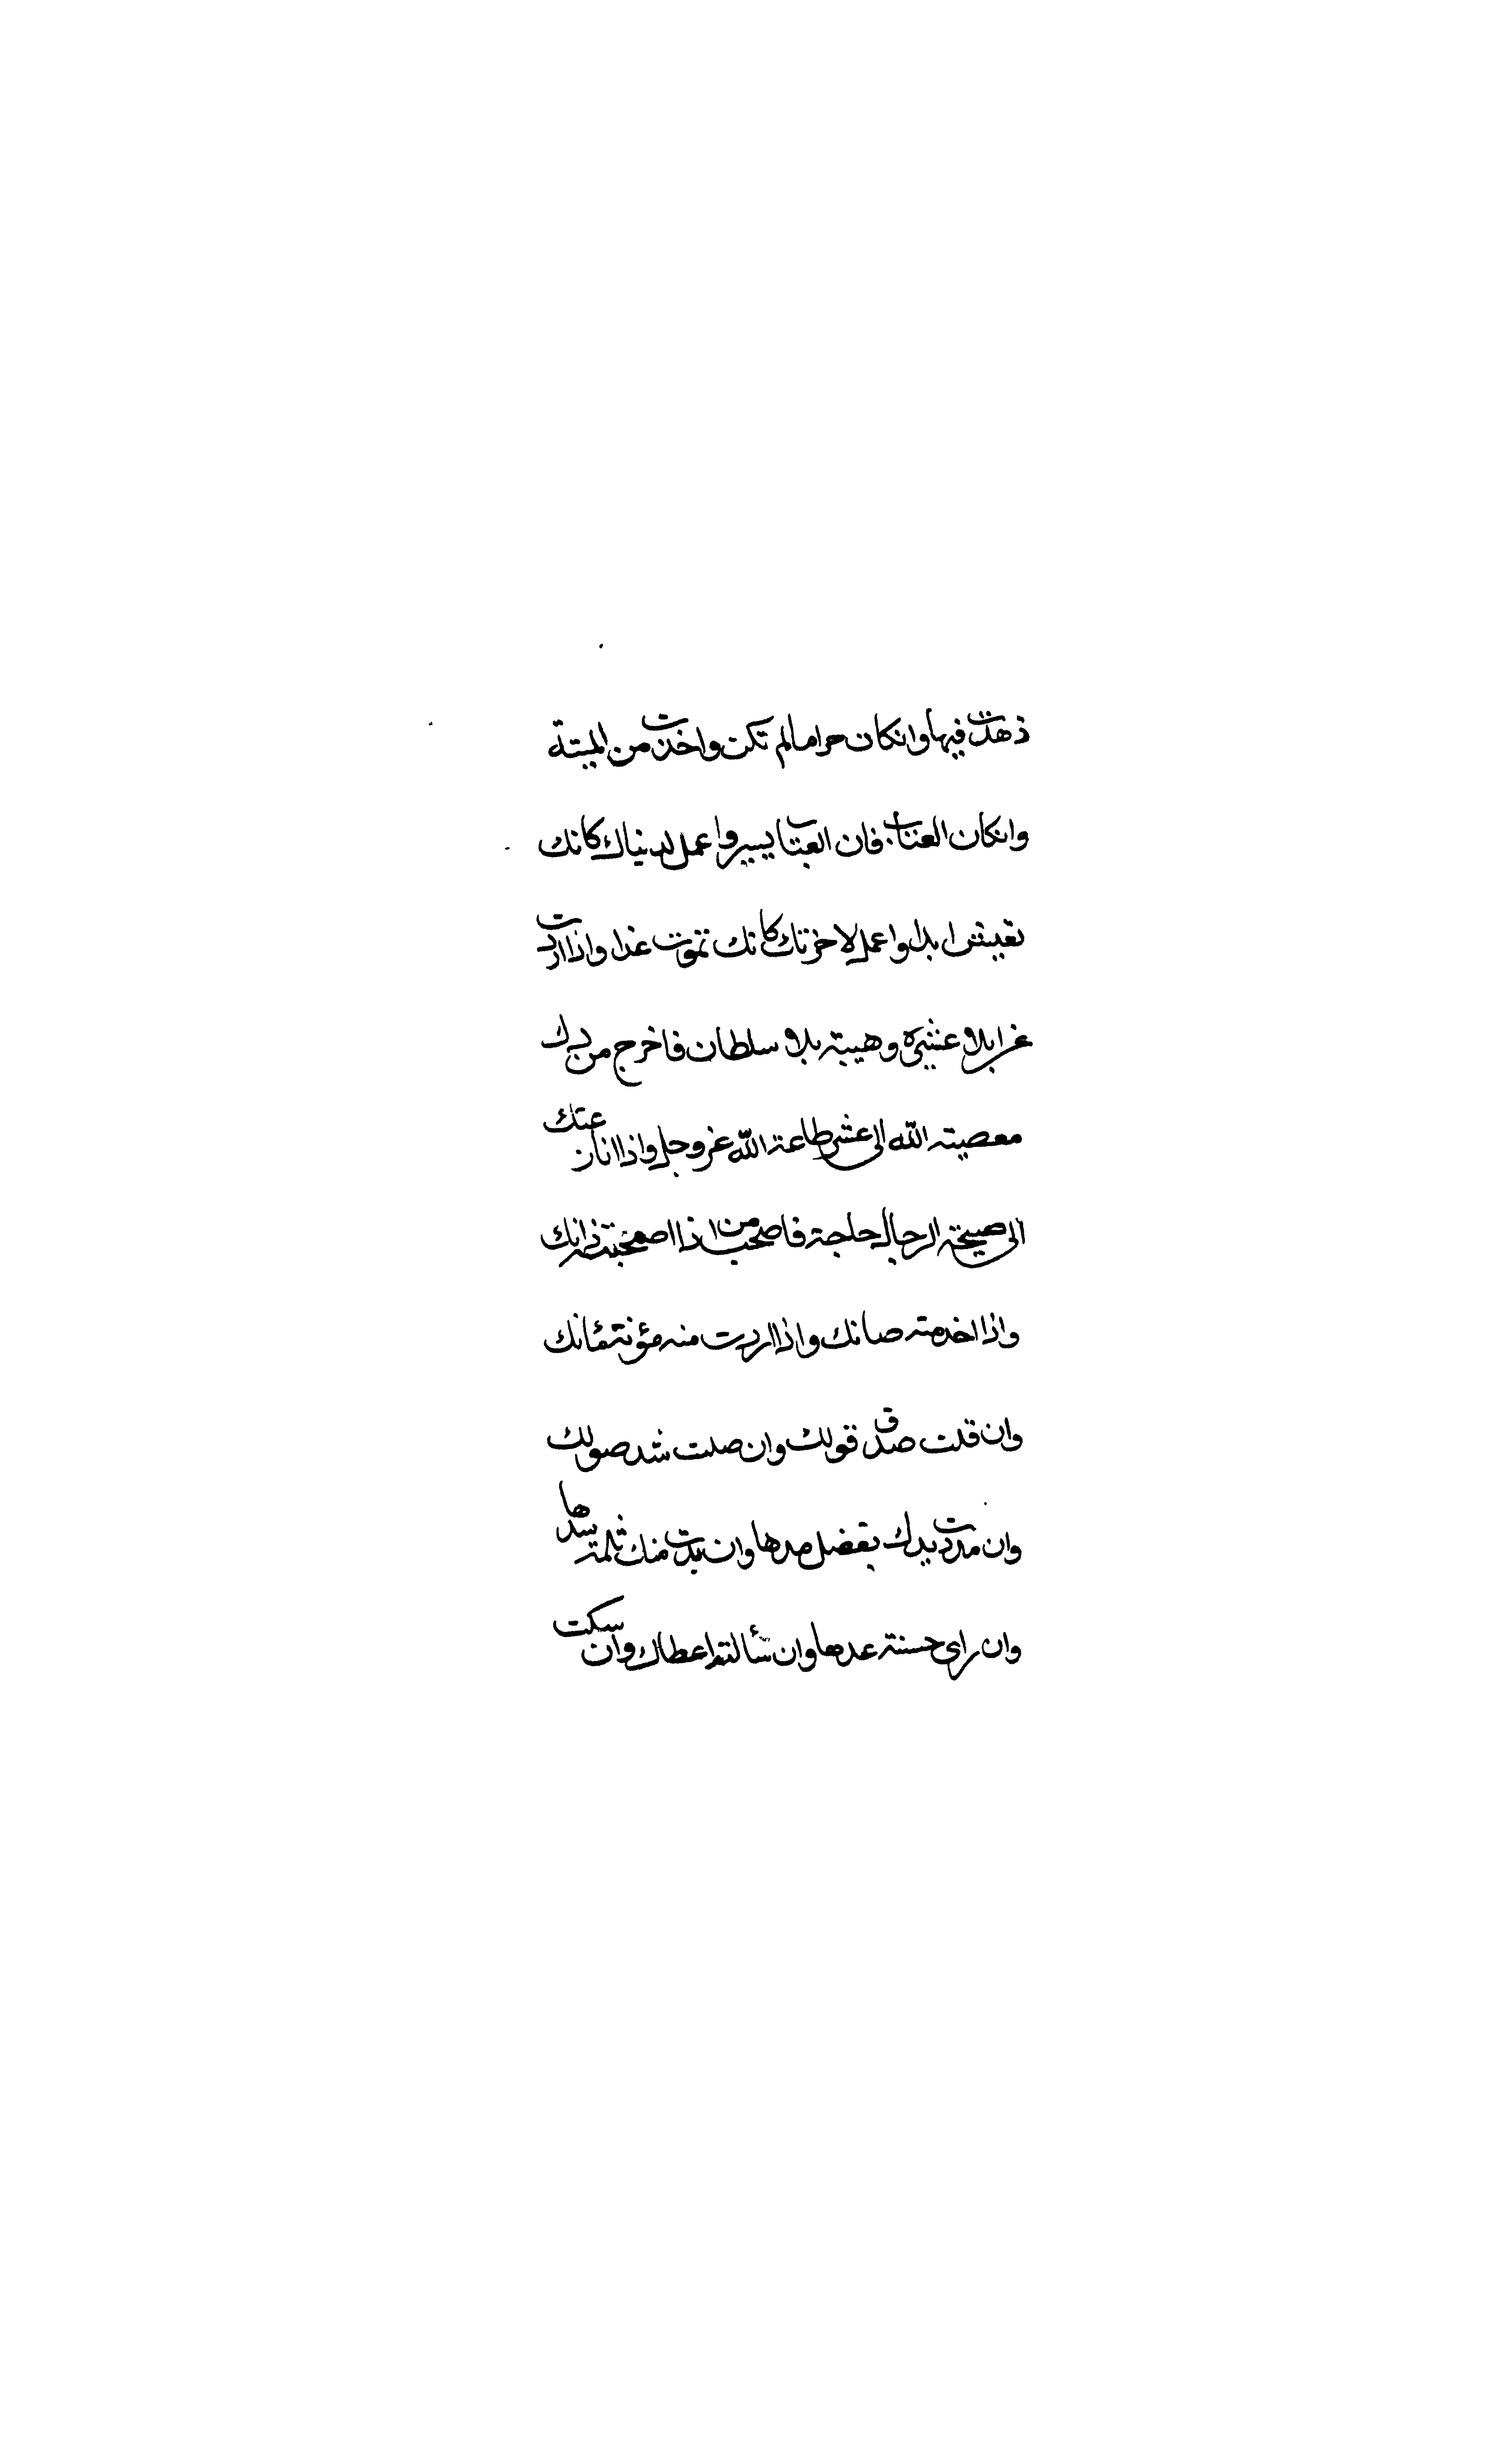 زهدت فيها وانكان حراما لم تكن واخذت من الميتة
وانكان العتاب فان العتاب يسير واعمل لدنياك كانك
تعيش ابدا واعمل لاخرتك كانك تموت غدا واذا اردت
عزا بلا عشيرة وهيبة بلا سلطان فاخرج من ذل
معصيته الله الى عز طاعة الله عز وجل واذا نازعتك
الى صحبة الرجال حاجة فاصحب من اذا صحبته زانك
واذا اخدمته صانك واذا اردت منه مؤنة مانك
وان قلت صدق قولك وان صلت شد صولك
وان مددت يدك بفضل مدها وان بدت منك ثلمة سدها
وان راى حسنة عدها وان سألته اعطاك وان سكت